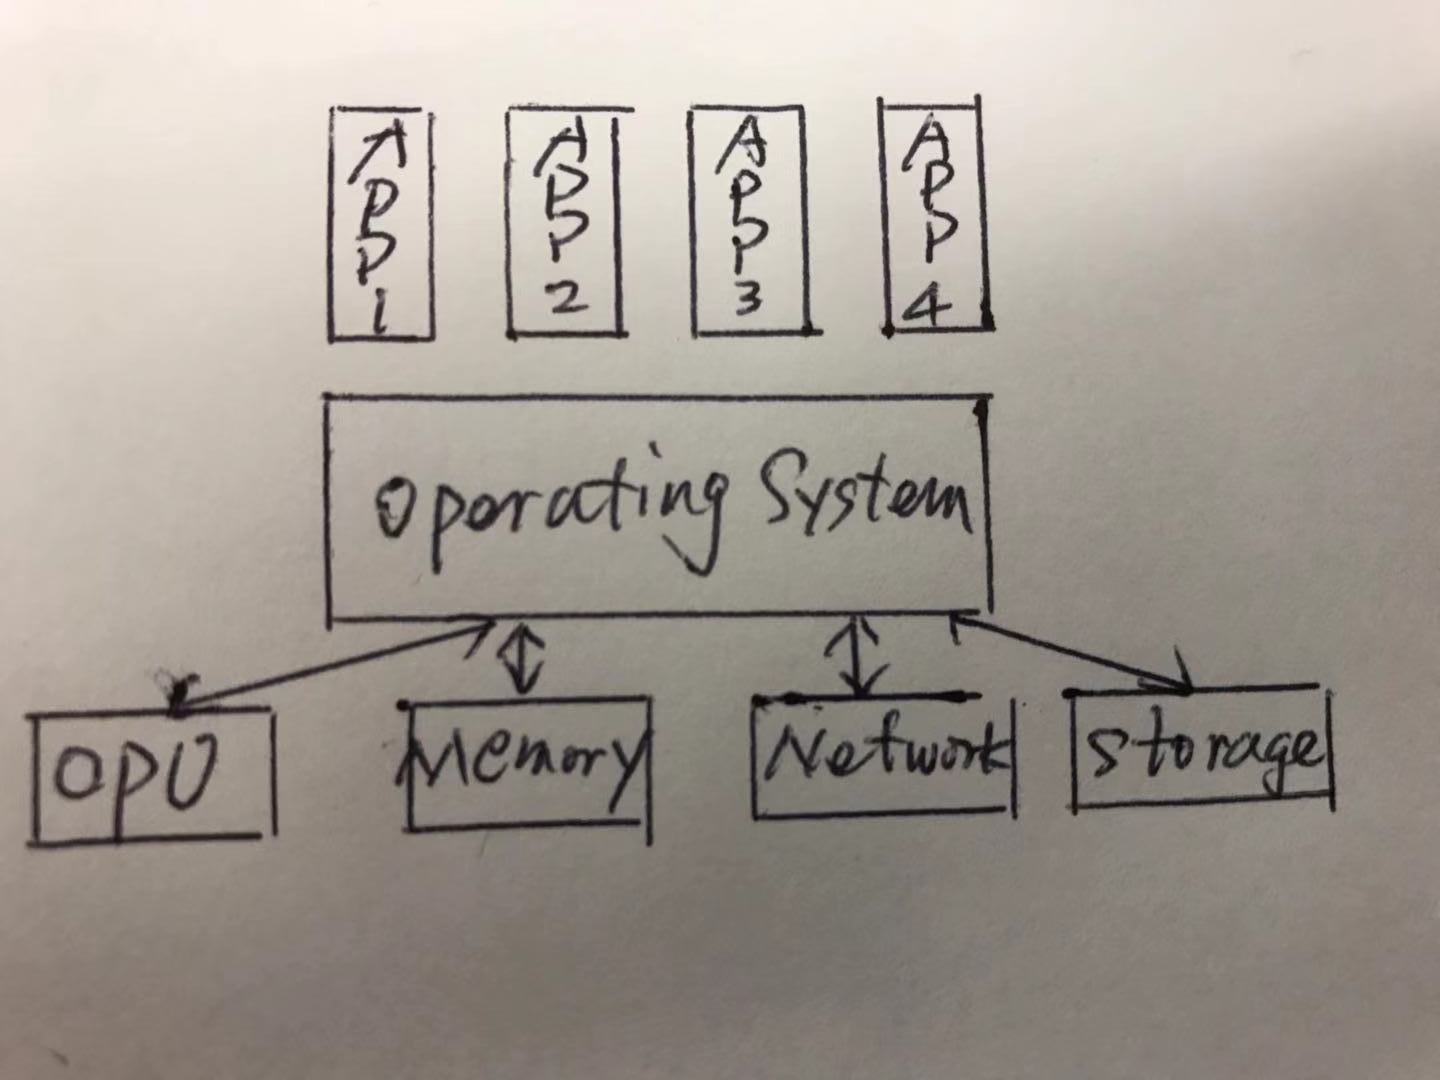 APP1
APP2
APP3
APP4
Operating System
OPU
Memory
Network
Storage